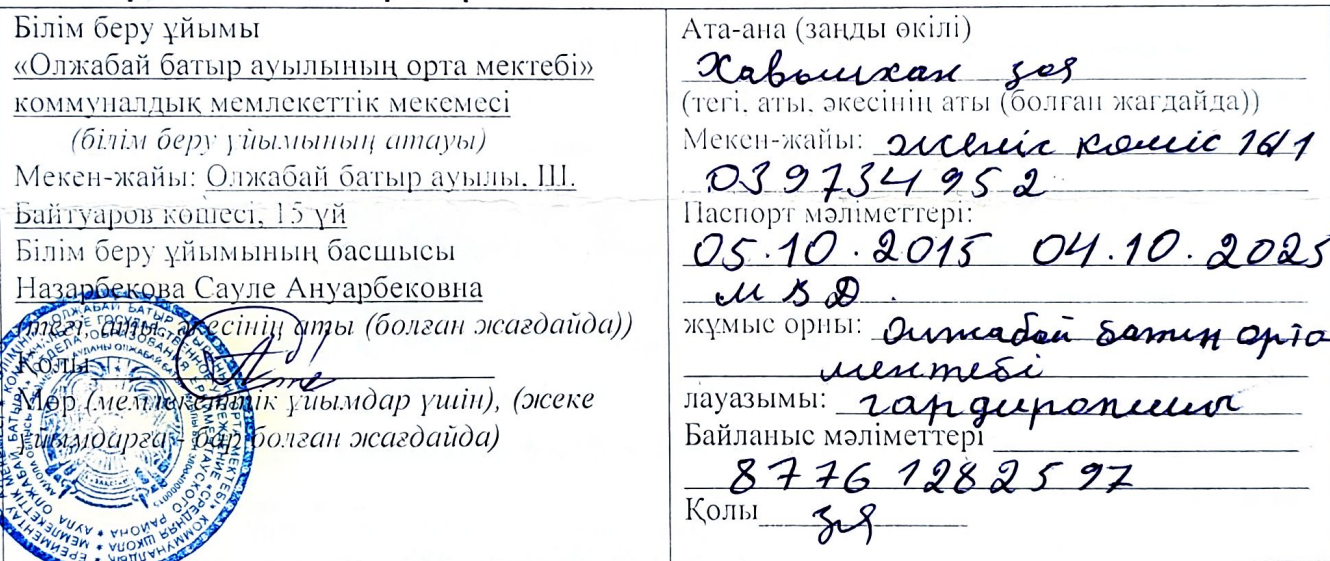 Білім беру ұйымы
«Олжабай батыр ауылының орта мектебі»
коммуналдық мемлекеттік мекемесі
(білім беру ұйымының атауы)
Мекен-жайы: Олжабай батыр ауылы, Ш.
Байтуаров көшесі, 15 үй
Білім беру ұйымының басшысы
Назарбекова Сауле Ануарбековна
(тегі, аты, әкесінің аты (болған жағдайда))
Қолы
Мөр (мемлекеттік ұйымдар үшін), (жеке
ұйымдарға - бар болған жағдайда)
Ата-ана (заңды өкілі)
Хавымхан Зоя
(тегі, аты, әкесінің аты (болған жағдайда))
Мекен-жайы: Жеңіс көшесі 16/1
039734952
Паспорт мәліметтері:
05.10.2015 04.10.2025
МВД.
жұмыс орны: Олжабай батыр орта
мектебі
лауазымы: гардиропшы
Байланыс мәліметтері
87761282597
Қолы